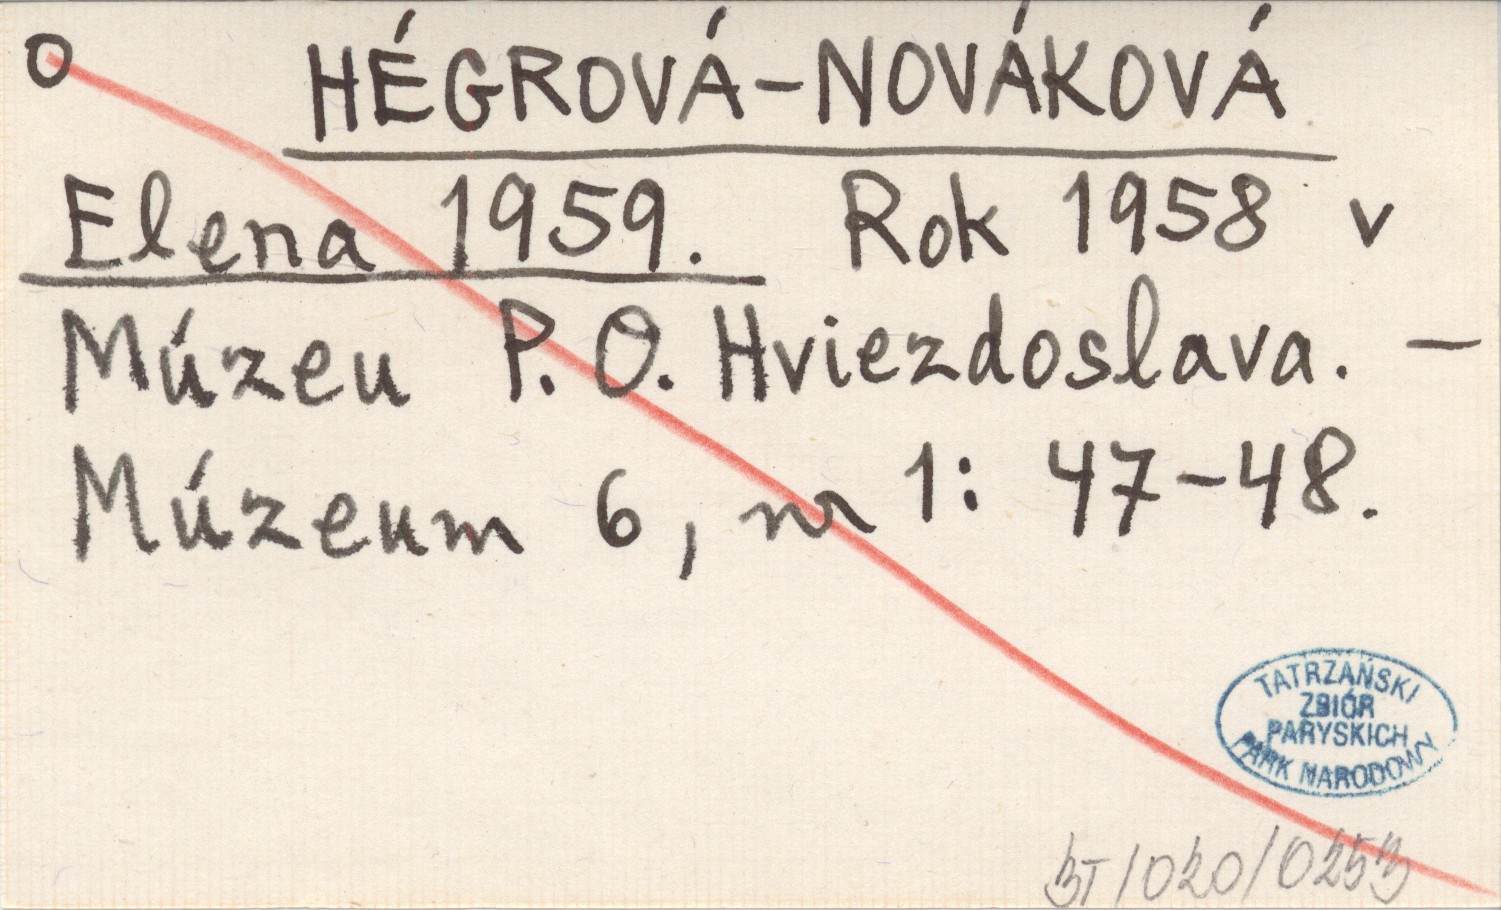 O HÉGROVÁ-NOVÁKOVÁ
Elena 1959. Rok 1958 v
Múzeu P. O. Hviezdoslava. —
Múzeum 6, nr 1: 47-48.
TATRZAŃSKI
ZBIÓR
PARYSKICH
PARK NARODOWY
BT/020/0253